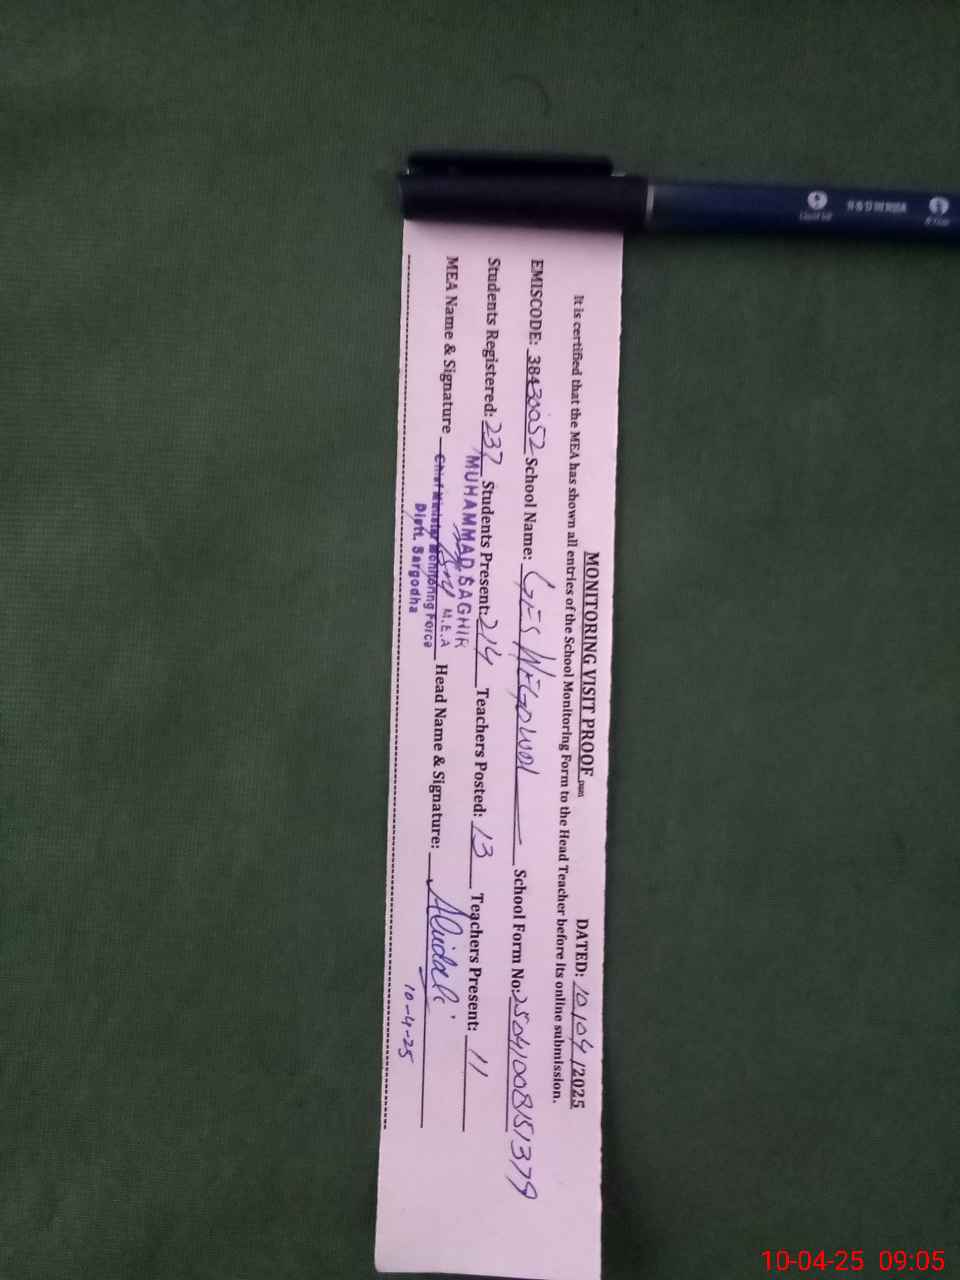 MONITORING VISIT PROOF DATED: 10/04/2025
It is certified that the MEA has shown all entries of the School Monitoring Form to the Head Teacher before its online submission.
EMISCODE: 38430052 School Name: GES Wegowal School Form No: 25041008151379
Students Registered: 237 Students Present: 214 Teachers Posted: 13 Teachers Present: 11
MUHAMMAD SAGHIR
M.E.A
MEA Name & Signature Chief Minister Monitoring Force Head Name & Signature:
Distt. Sargodha
10-4-25
10-04-25 09:05